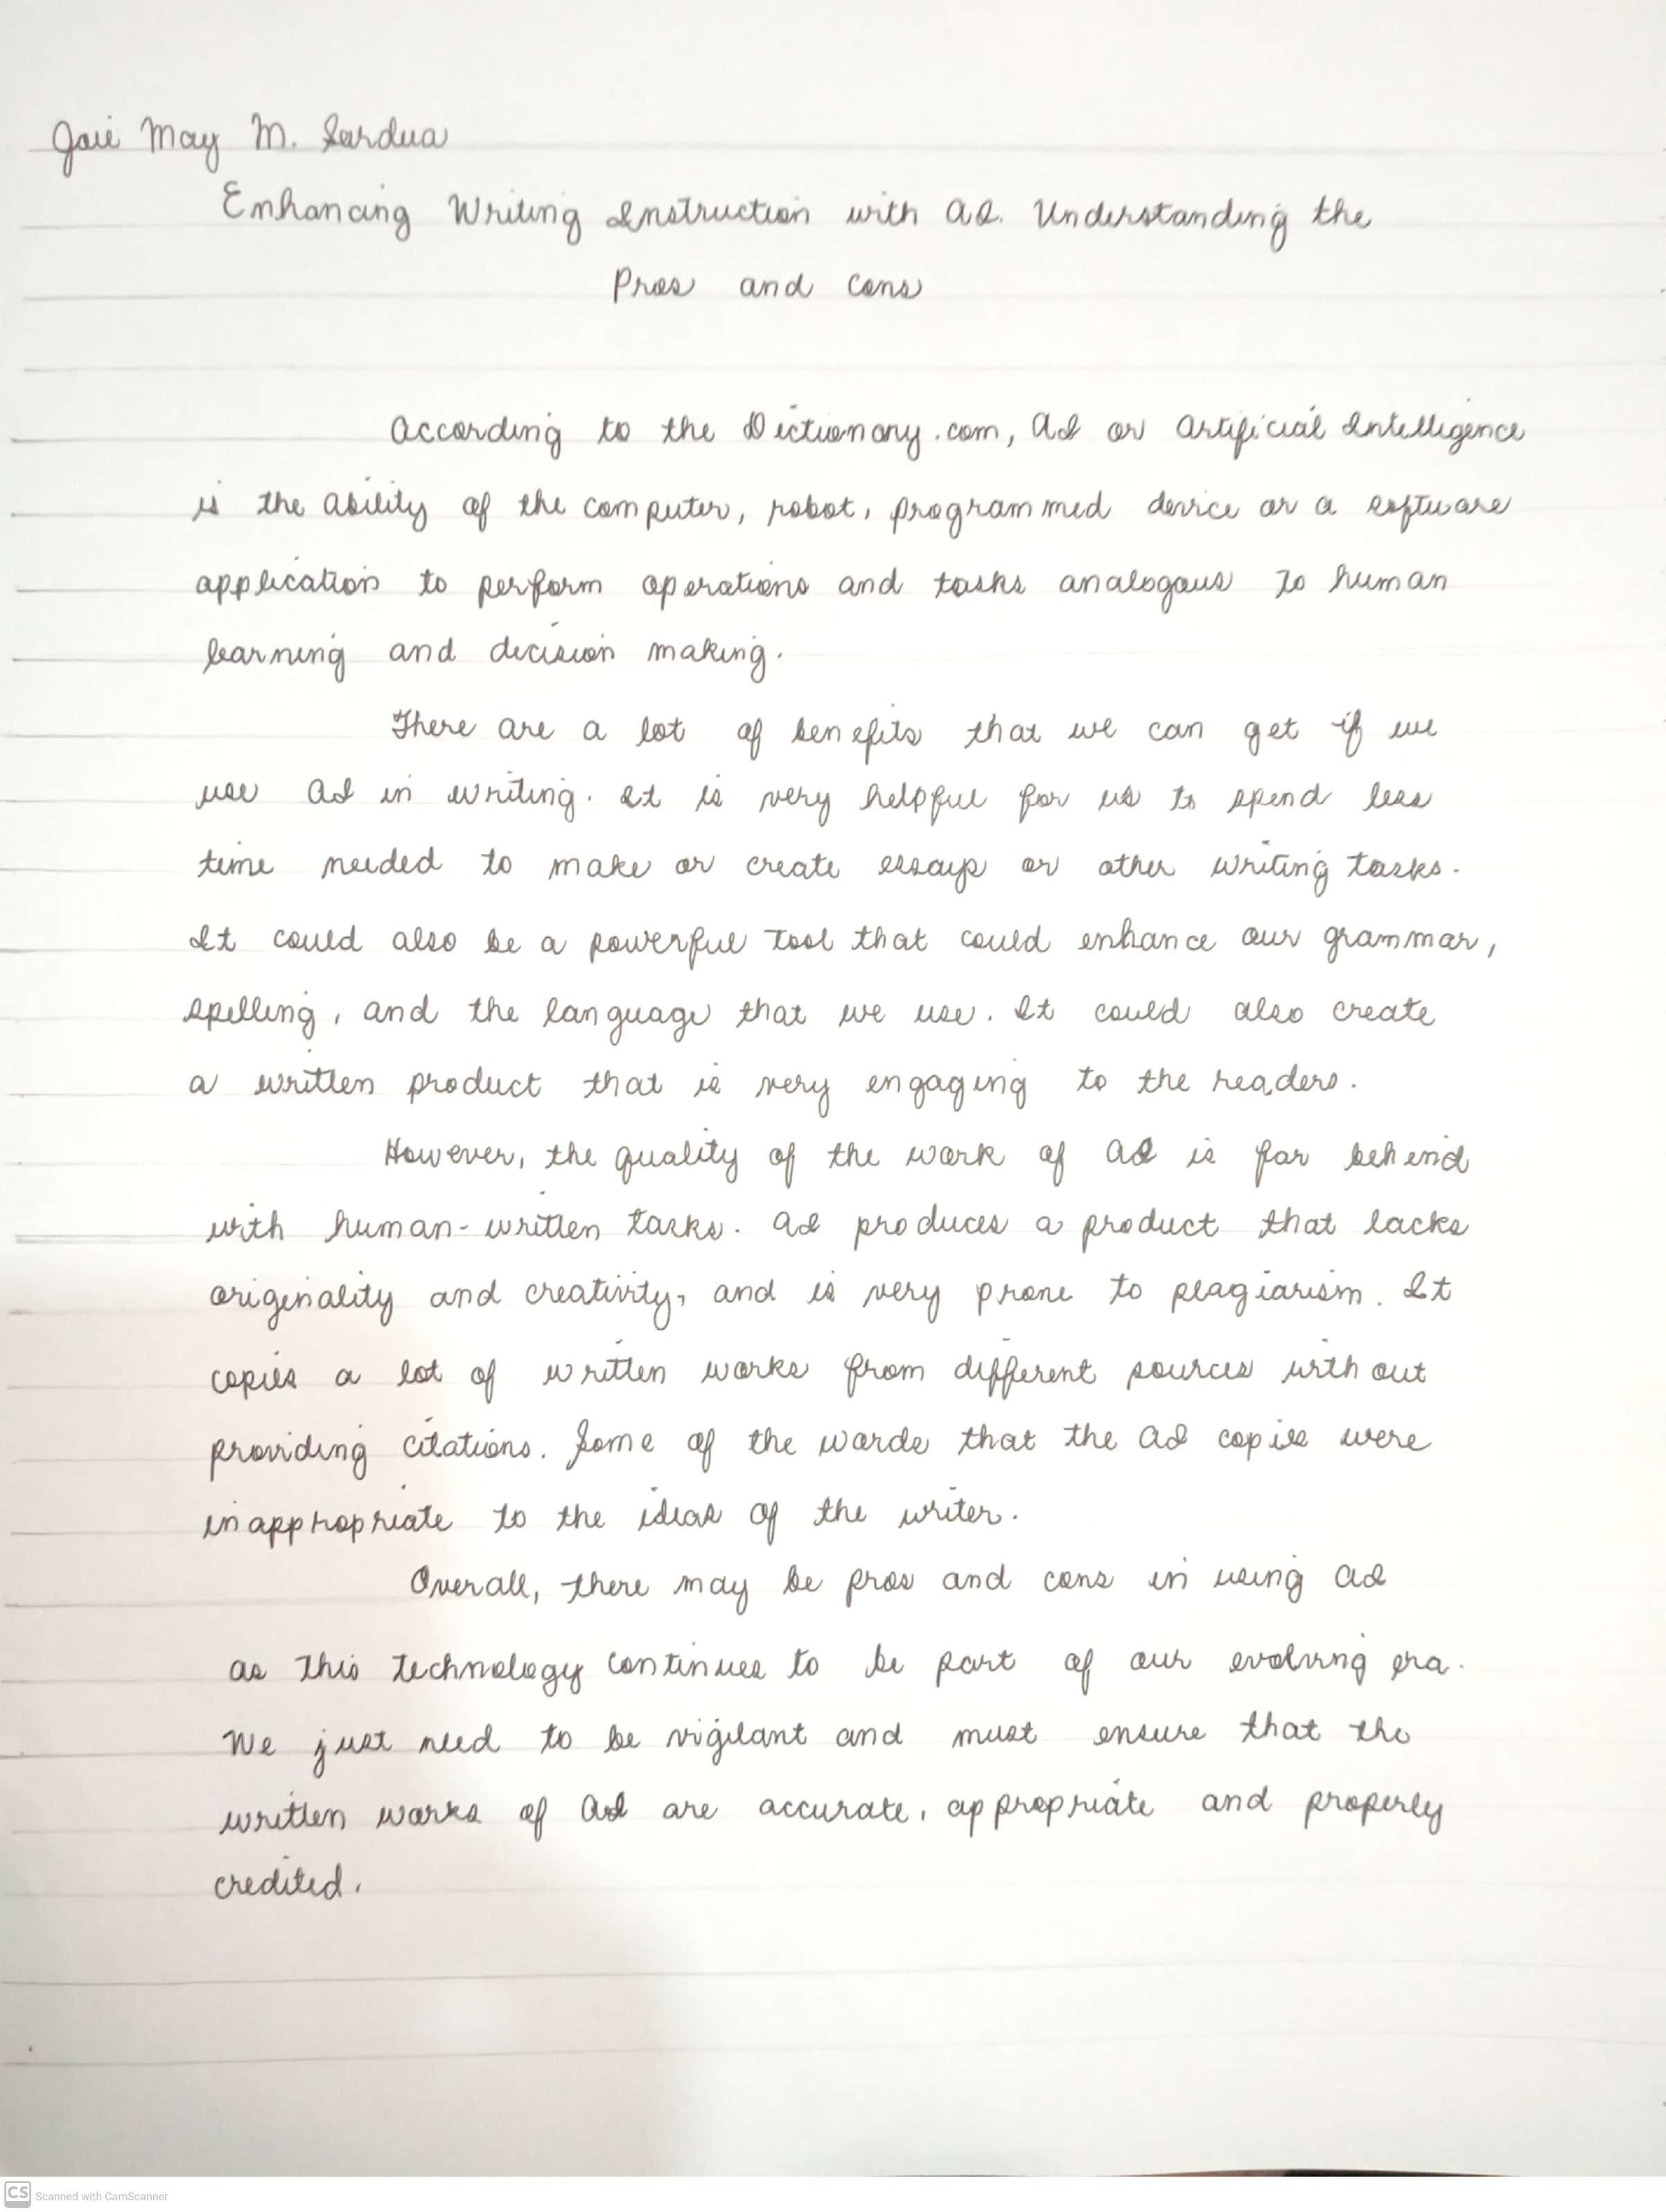 Jaie May M. Sardua
Enhancing Writing Instruction with AI. Understanding the
Pros and Cons
According to the Dictionary.com, AI or Artificial Intelligence
is the ability of the computer, robot, programmed device or a software
application to perform operations and tasks analogous to human
learning and decision making.
There are a lot of benefits that we can get if we
use AI in writing. It is very helpful for us to spend less
time needed to make or create essays or other writing tasks.
It could also be a powerful tool that could enhance our grammar,
spelling, and the language that we use. It could also create
a written product that is very engaging to the readers.
However, the quality of the work of AI is far behind
with human-written tasks. AI produces a product that lacks
originality and creativity, and is very prone to plagiarism. It
copies a lot of written works from different sources without
providing citations. Some of the words that the AI copies were
inappropriate to the ideas of the writer.
Overall, there may be pros and cons in using AI
as this technology continues to be part of our evolving era.
We just need to be vigilant and must ensure that the
written works of AI are accurate, appropriate and properly
credited.
CS Scanned with CamScanner